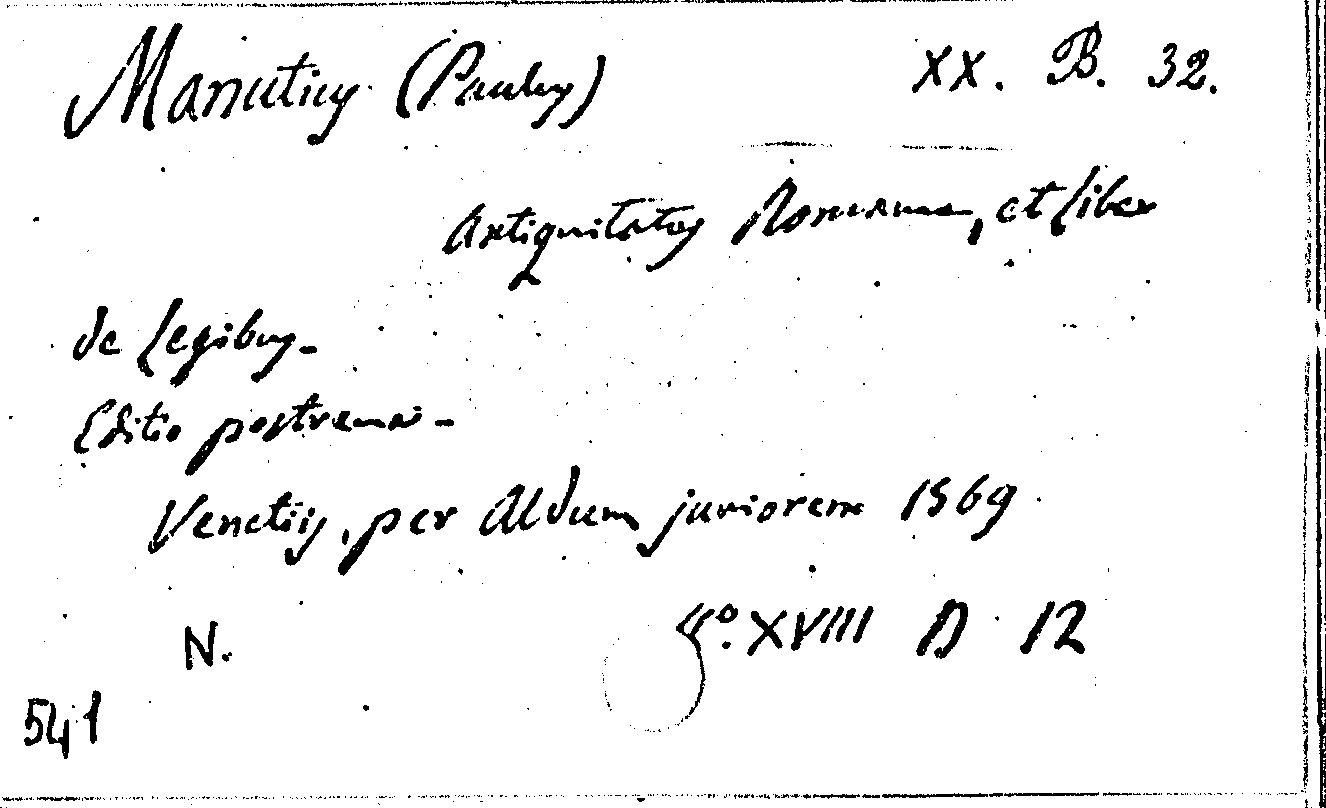 Manutius (Paulus) XX. B. 32.
Antiquitates Romanae, et liber
de legibus -
Editio postrema -
Venetiis, per Aldum juniorem 1569
8º. XVIII D 12
N.
541